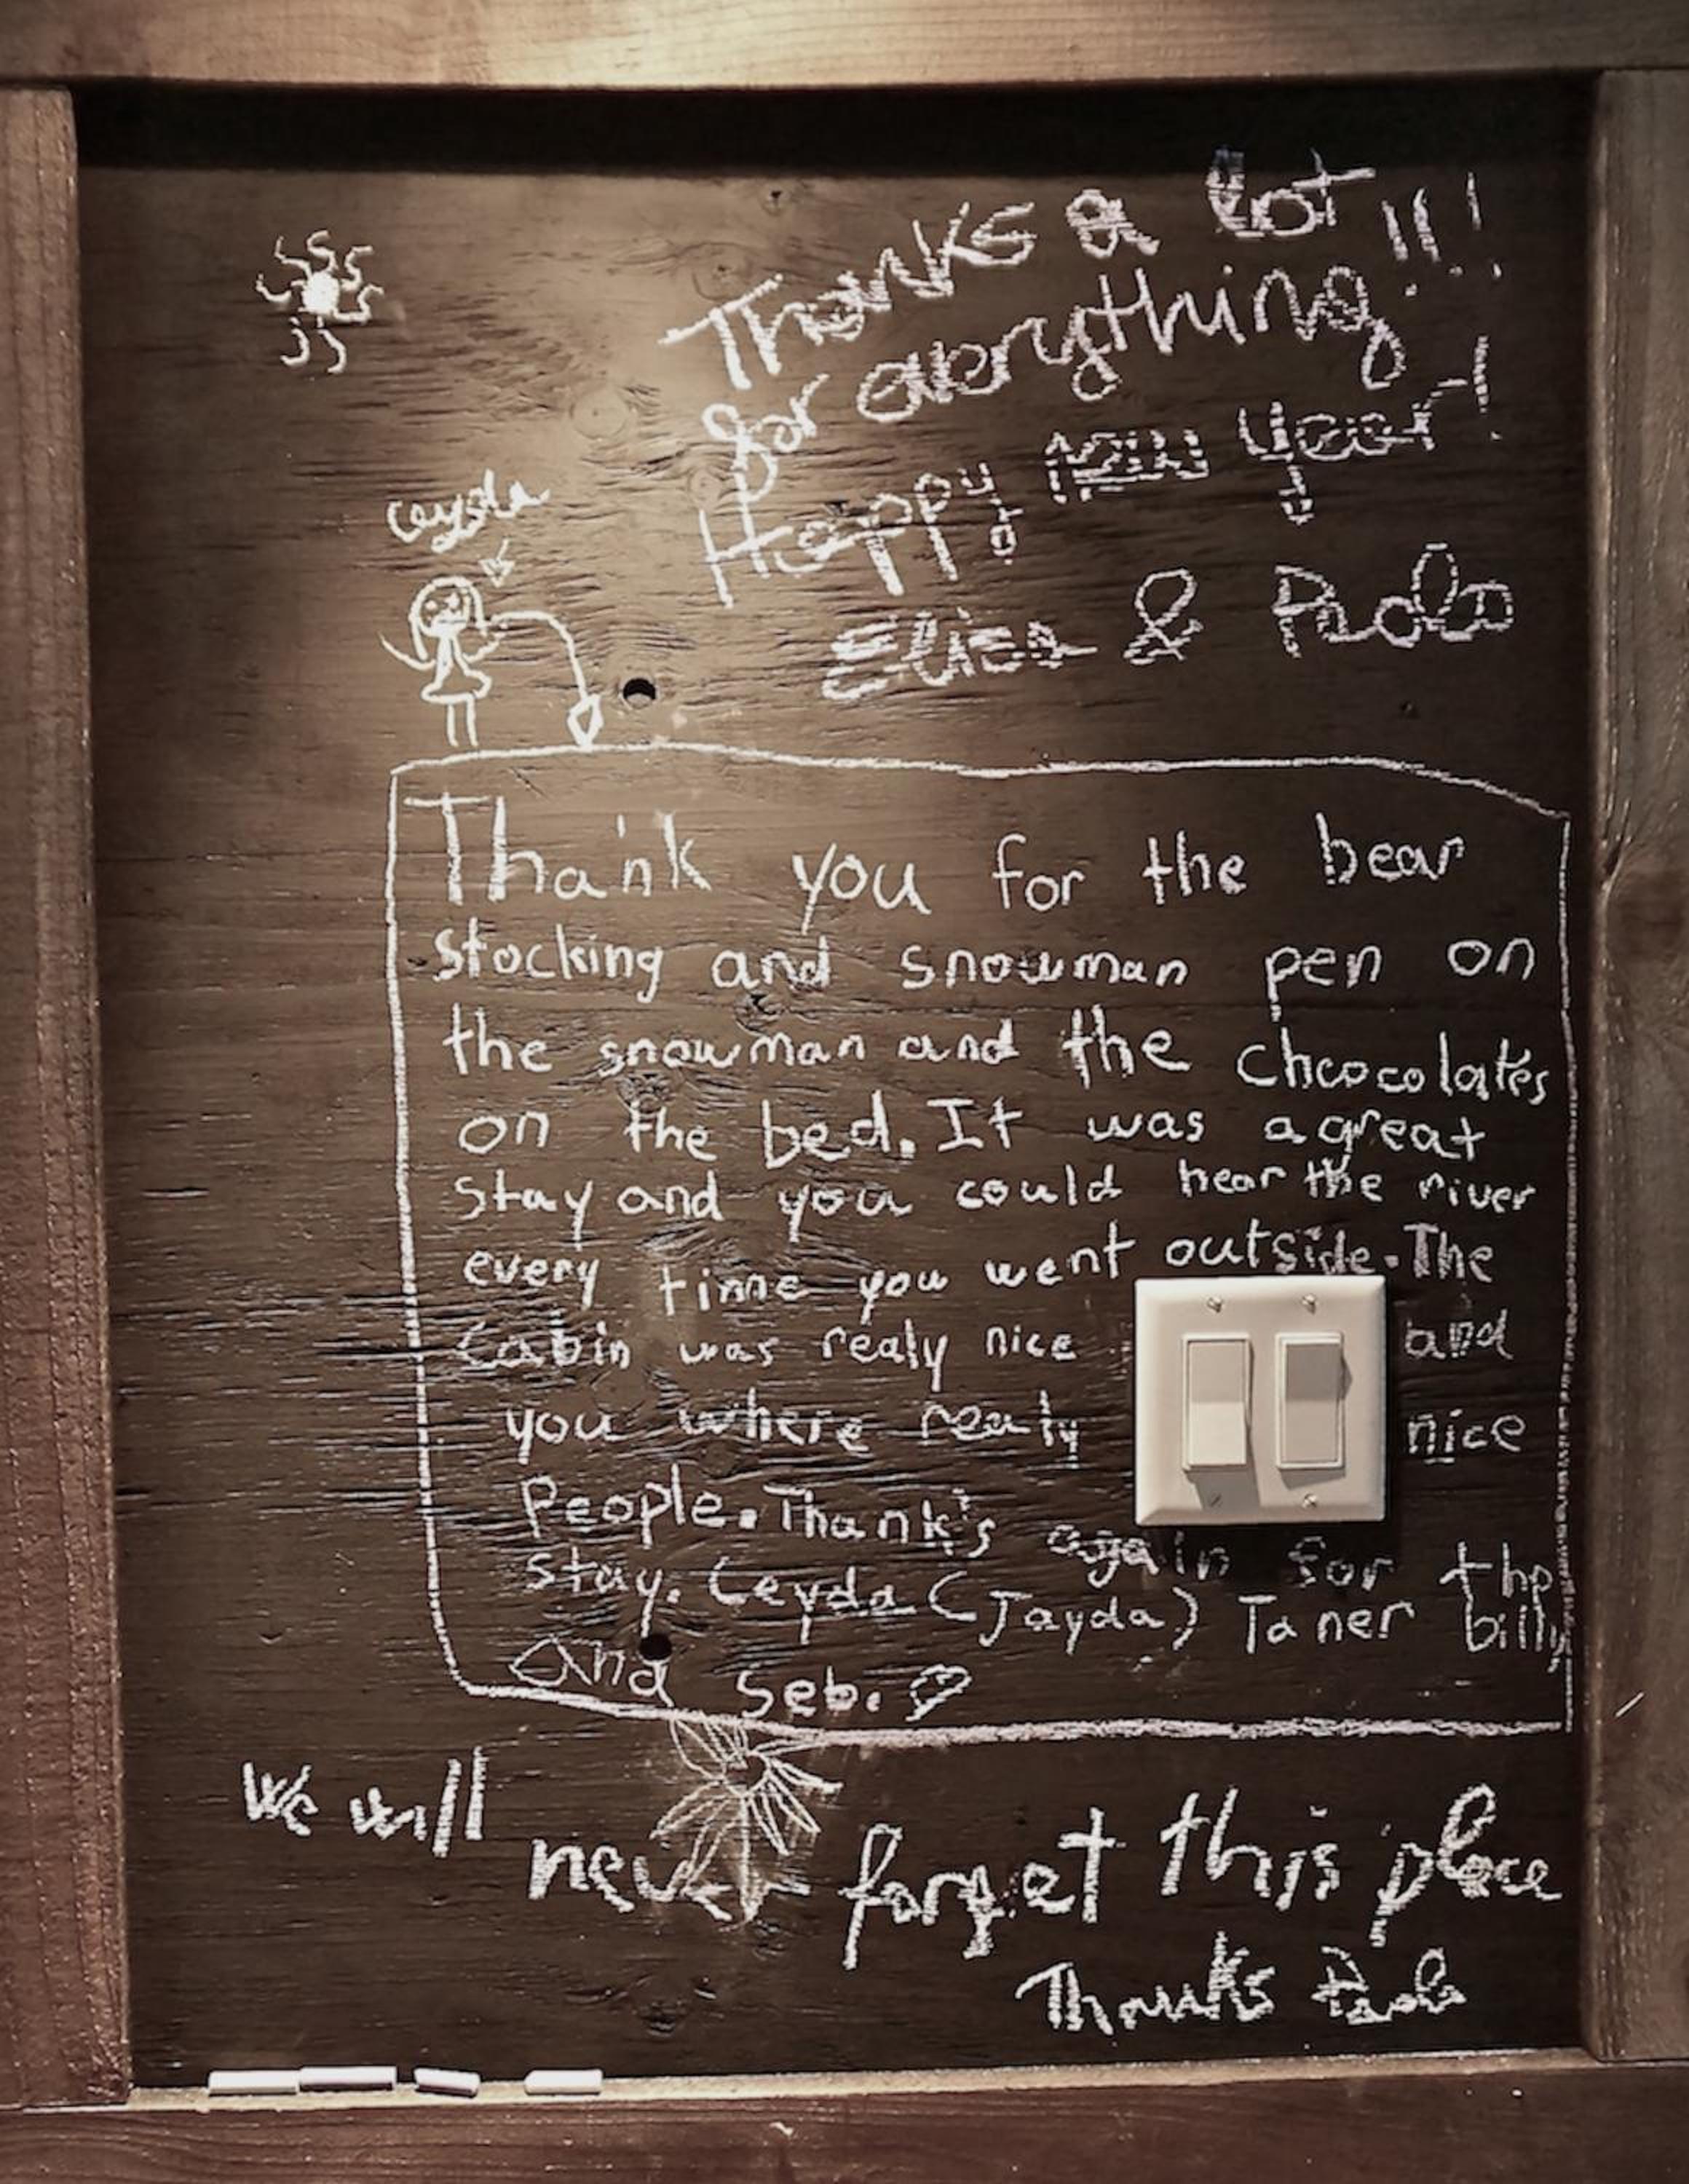 Thanks a lot!!!
for everything
Happy new year!
Elisa & Paolo
ceyda
Thank you for the bear
stocking and snowman pen on
the snowman and the chcocolates
on the bed. It was a great
stay and you could hear the river
every time you went outside. The
Cabin was realy nice and
you where realy nice
People. Thank's again for the
stay. Ceyda (Jayda) Taner billy
and Seb.
We will never forget this place
Thanks Paolo